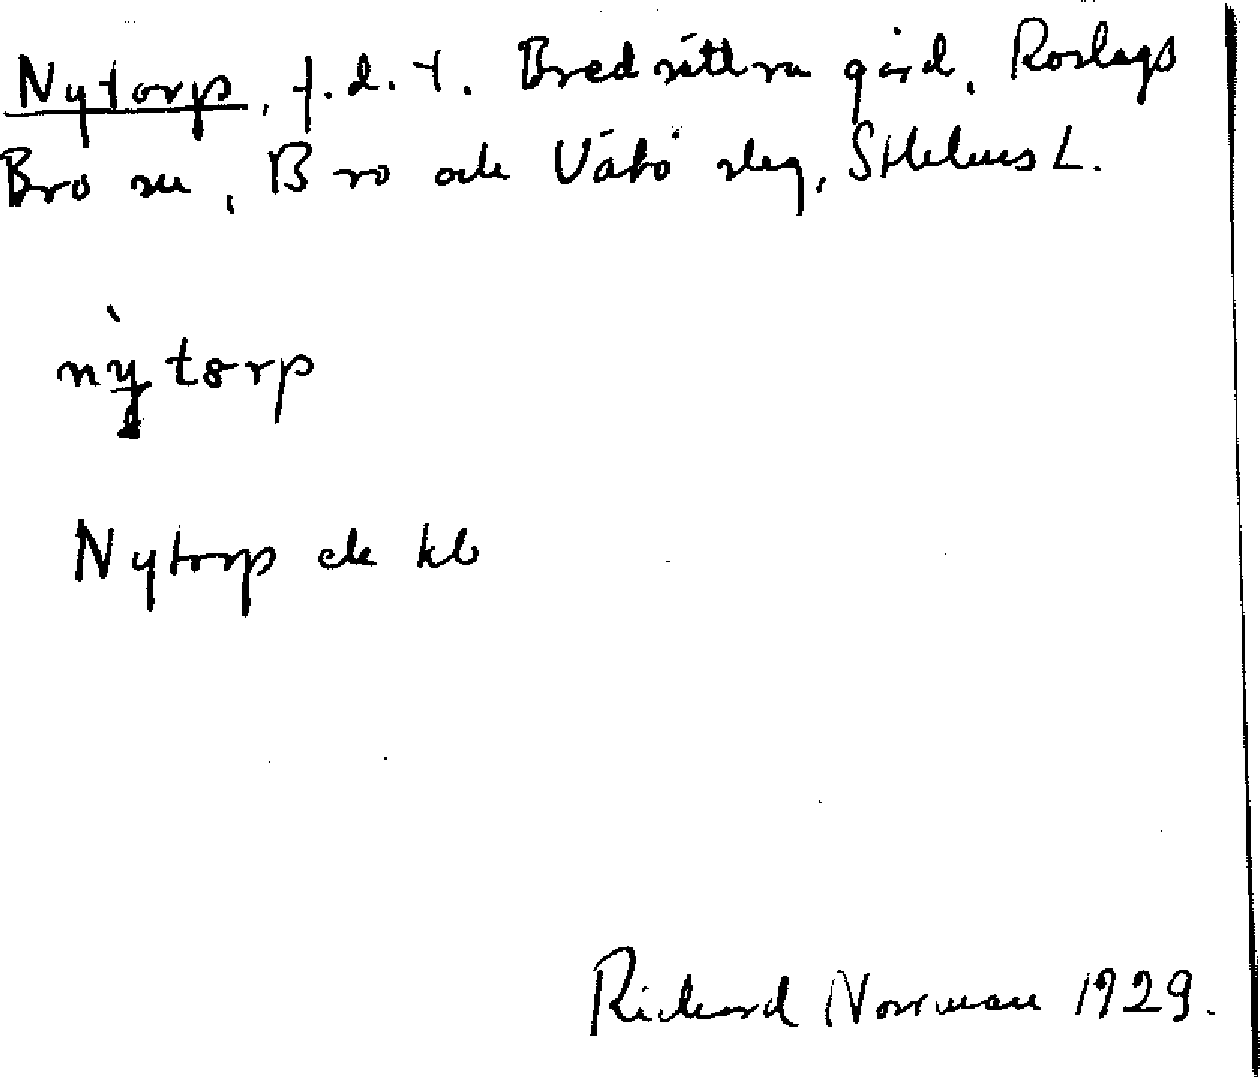 Nytorp, f.d.t. Bredsättra gård, Roslags
Bro sn, Bro och Vätö slg, Sthlms L.
nỳtorp
Nytorp ek kb
Richard Norrman 1929.